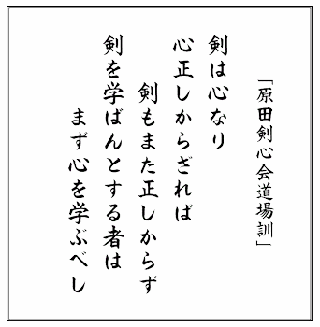 「原田剣心会道場訓」
剣は心なり
心正しからざれば
剣もまた正しからず
剣を学ばんとする者は
まず心を学ぶべし